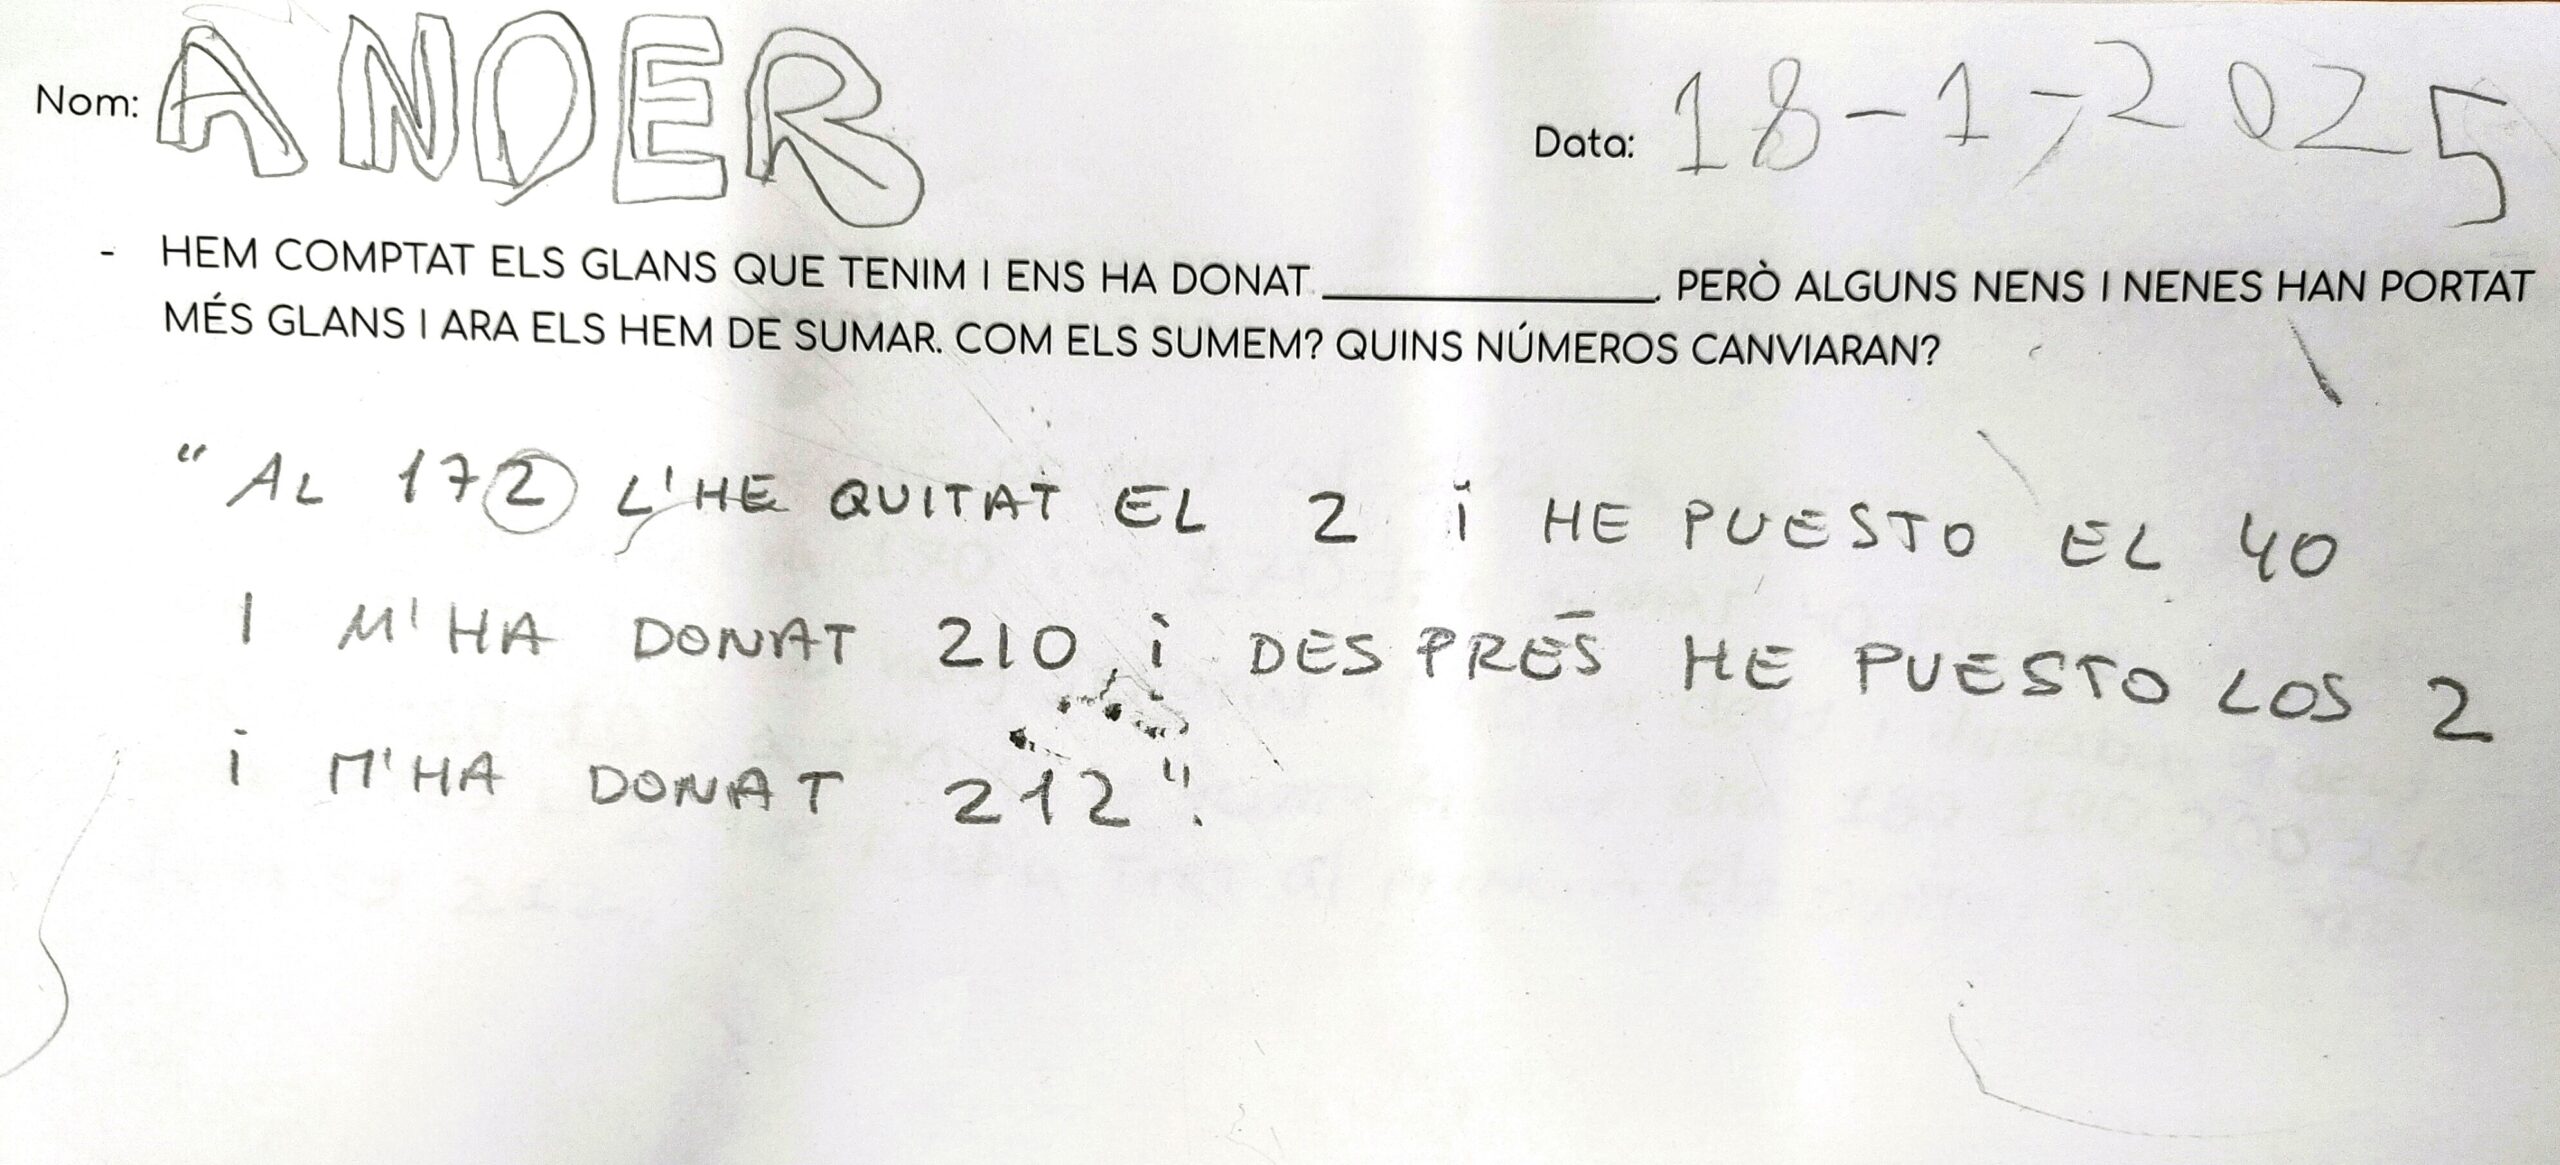 Nom: ANDER
Data: 18-1-2025
- HEM COMPTAT ELS GLANS QUE TENIM I ENS HA DONAT ____________. PERÒ ALGUNS NENS I NENES HAN PORTAT
MÉS GLANS I ARA ELS HEM DE SUMAR. COM ELS SUMEM? QUINS NÚMEROS CANVIARAN?
"AL 172 L'HE QUITAT EL 2 i HE PUESTO EL 40
I M'HA DONAT 210, i DESPRÉS HE PUESTO LOS 2
i M'HA DONAT 212".